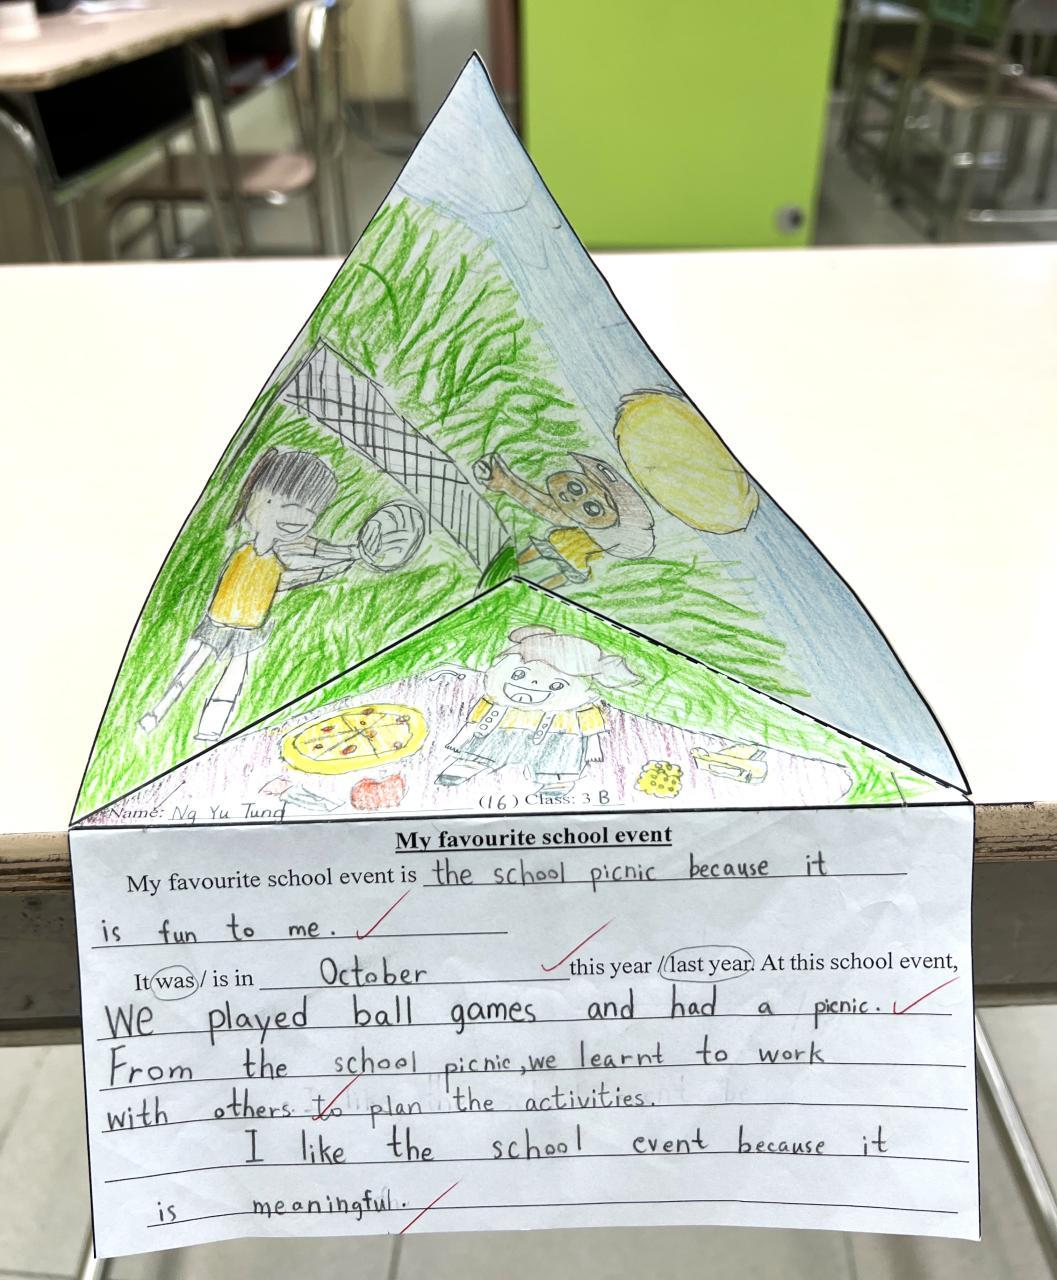 Name: Ng Yu Tung (16) Class: 3 B
My favourite school event
My favourite school event is the school picnic because it
is fun to me.
It was / is in October this year / last year. At this school event,
We played ball games and had a picnic.
From the school picnic, we learnt to work
with others to plan the activities.
I like the school event because it
is meaningful.